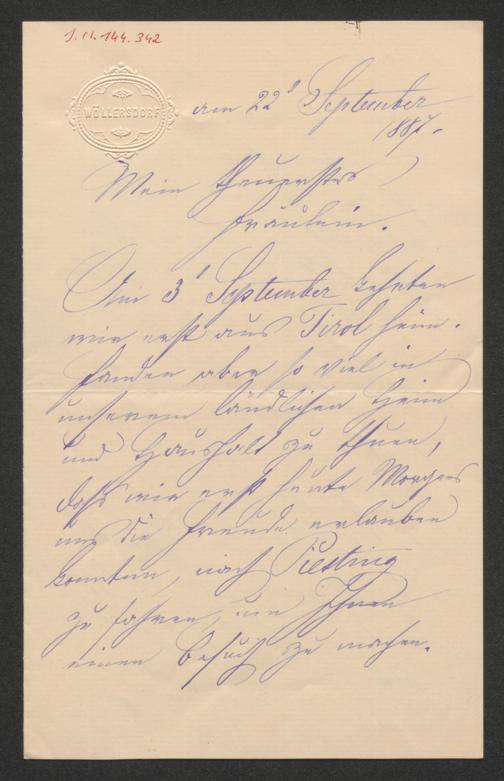 J. N. 144.342
WÖLLERSDORF
am 22' September
1887.
Mein theuerstes
Fräulein.
Am 3' September kehrten
wir erst aus Tirol heim.
fanden aber so viel in
unserem ländlichen Heim
und Haushalt zu thuen,
daß wir erst heute Morgens
uns die Freude erlauben
konnten, nach Piesting
zu fahren, um Ihnen
einen Besuch zu machen.